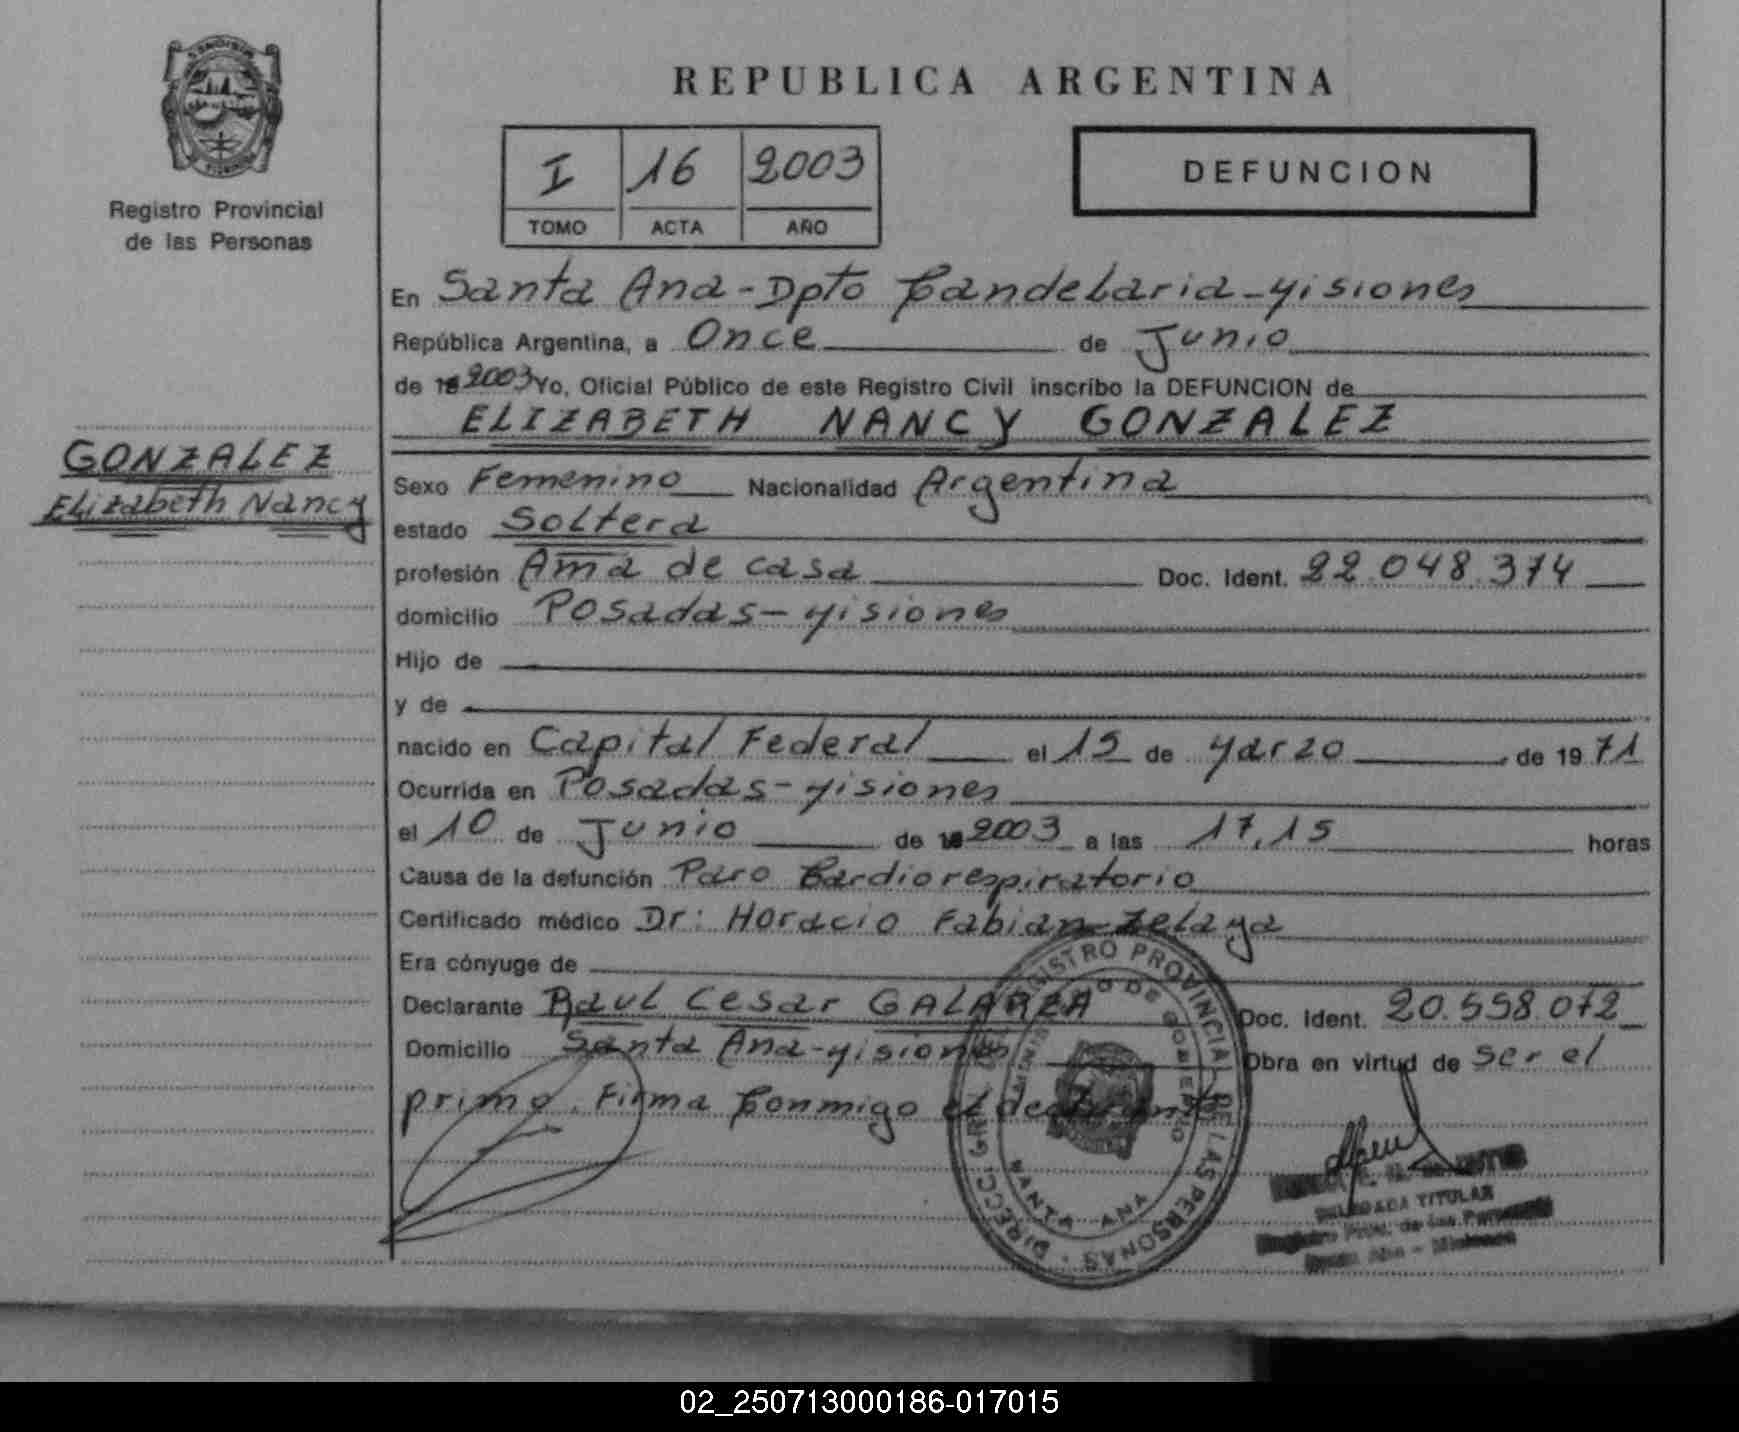 REPUBLICA ARGENTINA
I 16 2003
TOMO ACTA AÑO
DEFUNCION
Registro Provincial
de las Personas
En Santa Ana - Dpto Candelaria - Misiones
República Argentina, a Once de Junio
de 19 2003 Yo, Oficial Público de este Registro Civil inscribo la DEFUNCION de
ELIZABETH NANCY GONZALEZ
GONZALEZ
Elizabeth Nancy
Sexo Femenino Nacionalidad Argentina
estado Soltera
profesión Ama de casa Doc. Ident. 22.048.374
domicilio Posadas - Misiones
Hijo de
y de
nacido en Capital Federal el 15 de Marzo de 1971
Ocurrida en Posadas - Misiones
el 10 de Junio de 2003 a las 17,15 horas
Causa de la defunción Paro Cardiorespiratorio
Certificado médico Dr: Horacio Fabian Zelaya
Era cónyuge de
Declarante Raul Cesar GALARZA Doc. Ident. 20.558.072
Domicilio Santa Ana - Misiones Obra en virtud de ser el
primo. Firma Conmigo el declarante
DIRECCION GRAL DEL REGISTRO PROVINCIAL DE LAS PERSONAS
MINISTERIO DE GOBIERNO
SANTA ANA
DELEGADA TITULAR
Registro Prov. de las Personas
Santa Ana - Misiones
02_250713000186-017015